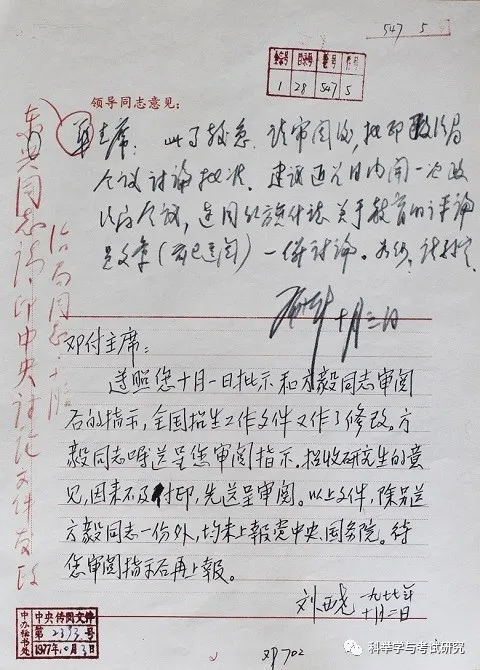 547 5
全宗号 目录号 卷号 件号
1 28 547 5
领导同志意见：
华主席：此事较急，请审阅后，批印政治局
会议讨论批准。建议近几日内开一次政
治局会议，连同红旗什志关于教育的评论
员文章（前已送阅）一併讨论。
十月三日
东兴同志：请印中央讨论文件，发政
治局同志。
邓付主席：
遵照您十月一日批示和方毅同志审阅
后的指示，全国招生工作文件又作了修改。方
毅同志嘱送呈您审阅指示。招收研究生的意
见，因来不及付印，先送呈审阅。以上文件，除另送
方毅同志一份外，均未上報党中央、国务院。待
您审阅指示后再上報。
刘西尧 一九七七年
十月二日
中办秘书处
中央传阅文件
第2393号
1977年10月3日
邓702
科举学与考试研究